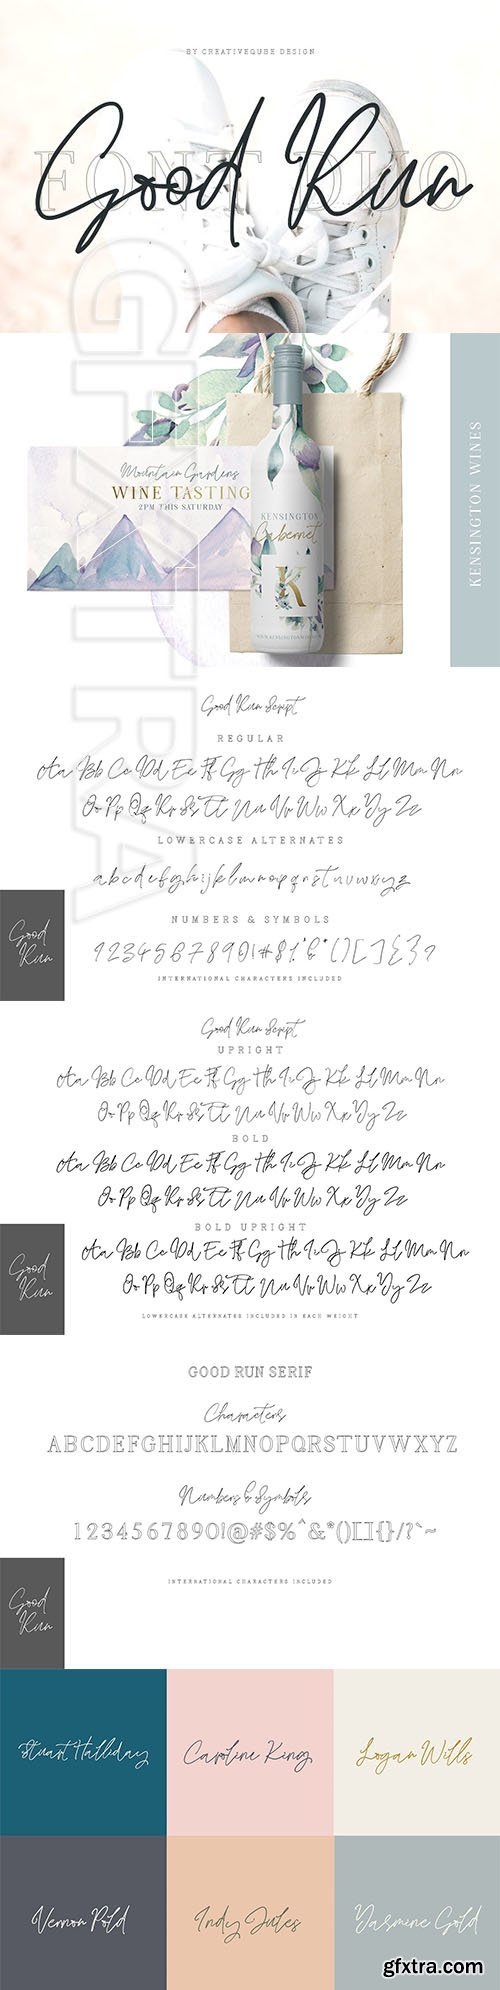 BY CREATIVEQUBE DESIGN
FONT DUO
Good Run
GFXTRA
KENSINGTON WINES
Mountain Gardens
WINE TASTING
2PM THIS SATURDAY
KENSINGTON
Cabernet
K
Good Run Script
REGULAR
Aa Bb Cc Dd Ee Ff Gg Hh Ii Jj Kk Ll Mm Nn
Oo Pp Qq Rr Ss Tt Uu Vv Ww Xx Yy Zz
LOWERCASE ALTERNATES
abcdefghijklmnopqrstuvwxyz
NUMBERS & SYMBOLS
Good
Run
INTERNATIONAL CHARACTERS INCLUDED
Good Run Script
UPRIGHT
Aa Bb Cc Dd Ee Ff Gg Hh Ii Jj Kk Ll Mm Nn
Oo Pp Qq Rr Ss Tt Uu Vv Ww Xx Yy Zz
BOLD
Aa Bb Cc Dd Ee Ff Gg Hh Ii Jj Kk Ll Mm Nn
Oo Pp Qq Rr Ss Tt Uu Vv Ww Xx Yy Zz
BOLD UPRIGHT
Aa Bb Cc Dd Ee Ff Gg Hh Ii Jj Kk Ll Mm Nn
Oo Pp Qq Rr Ss Tt Uu Vv Ww Xx Yy Zz
Good
Run
LOWERCASE ALTERNATES INCLUDED IN EACH WEIGHT
GOOD RUN SERIF
Characters
ABCDEFGHIJKLMNOPQRSTUVWXYZ
Numbers & Symbols
1234567890!@#$%^&*()[]{}/?`~
INTERNATIONAL CHARACTERS INCLUDED
Good
Run
Stuart Halliday
Caroline King
Logan Wills
Vernon Pold
Indy Jules
Yasmine Gold
gfxtra.com